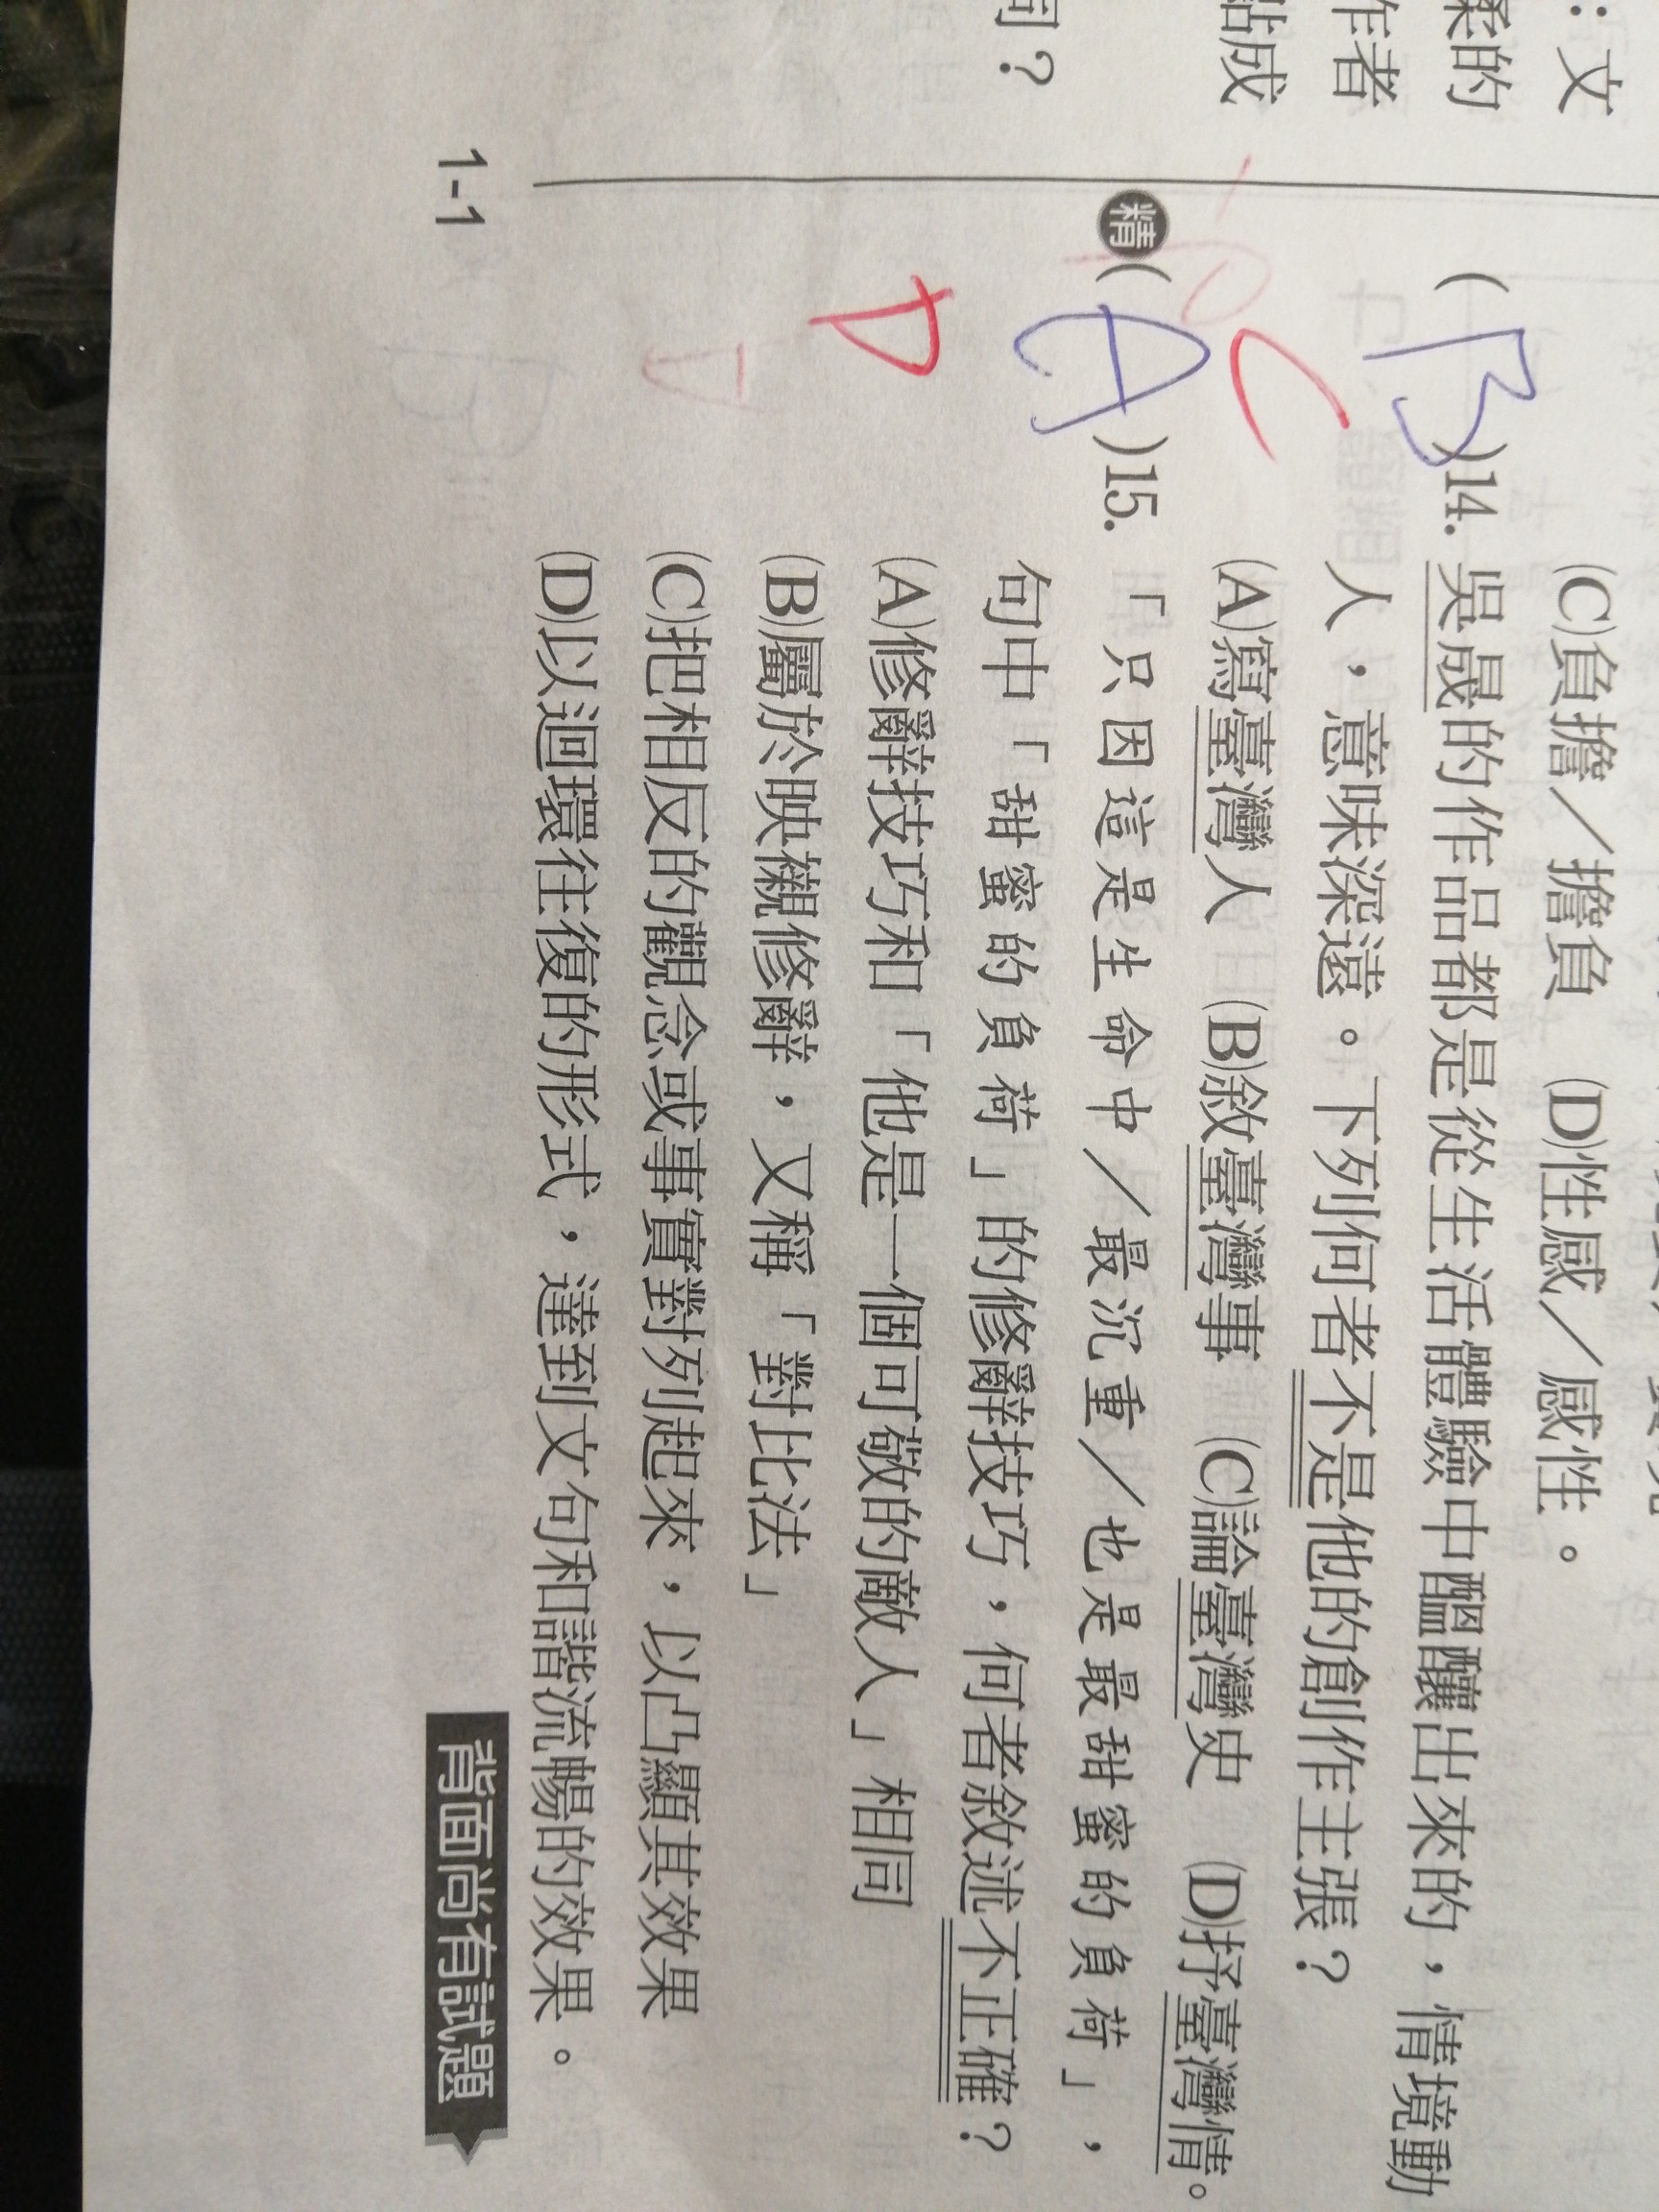 ：文
柔的
作者
點成
同？
(C)負擔／擔負　(D)性感／感性。
(B)14.吳晟的作品都是從生活體驗中醞釀出來的，情境動
人，意味深遠。下列何者不是他的創作主張？
C
(A)寫臺灣人　(B)敘臺灣事　(C)論臺灣史　(D)抒臺灣情。
精(A)15.「只因這是生命中／最沉重／也是最甜蜜的負荷」，
句中「甜蜜的負荷」的修辭技巧，何者敘述不正確？
D
(A)修辭技巧和「他是一個可敬的敵人」相同
(B)屬於映襯修辭，又稱「對比法」
(C)把相反的觀念或事實對列起來，以凸顯其效果
(D)以迴環往復的形式，達到文句和諧流暢的效果。
1-1
背面尚有試題